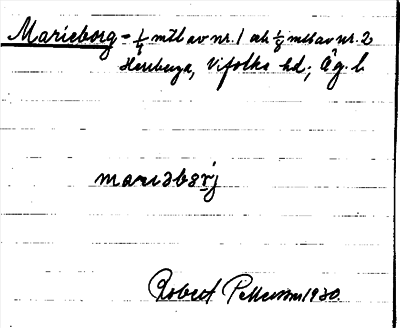 Marieborg = 1/4 mtl av nr. 1 och 1/8 mtl av nr. 2
Herrberga, Vifolka hd; Ög. l.
mariabærj
Robert Pettersson 1930.